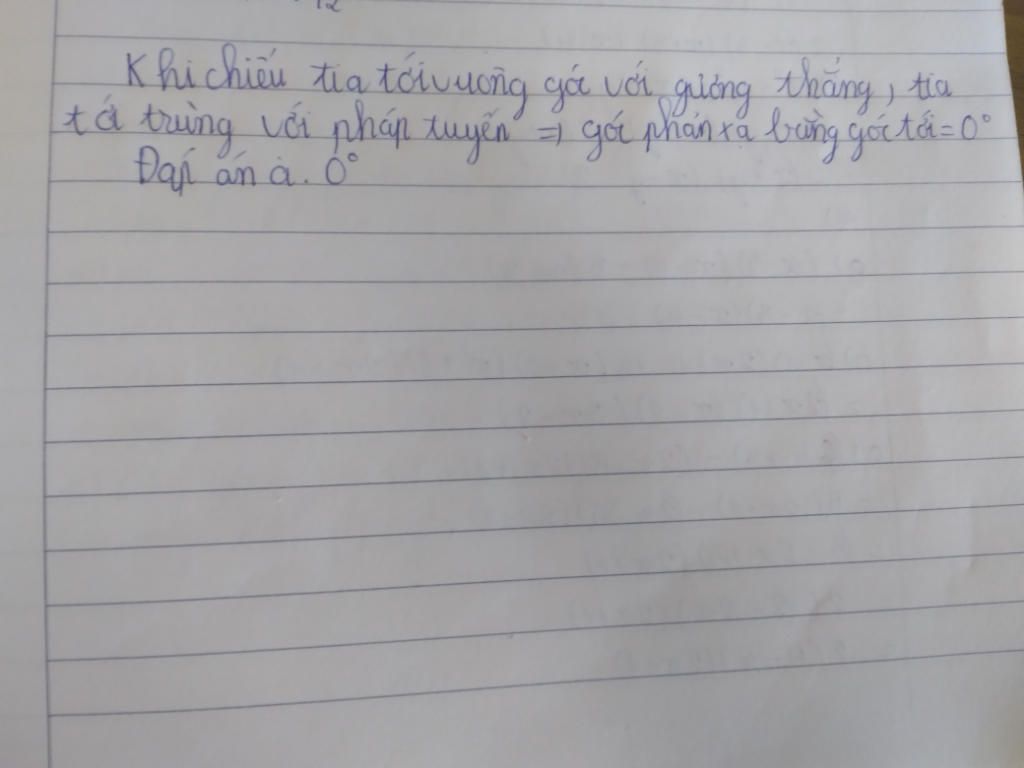 12
Khi chiếu tia tới vuông góc với gương thẳng, tia
tới trùng với pháp tuyến => góc phản xạ bằng góc tới = 0°
Đáp án à. 0°